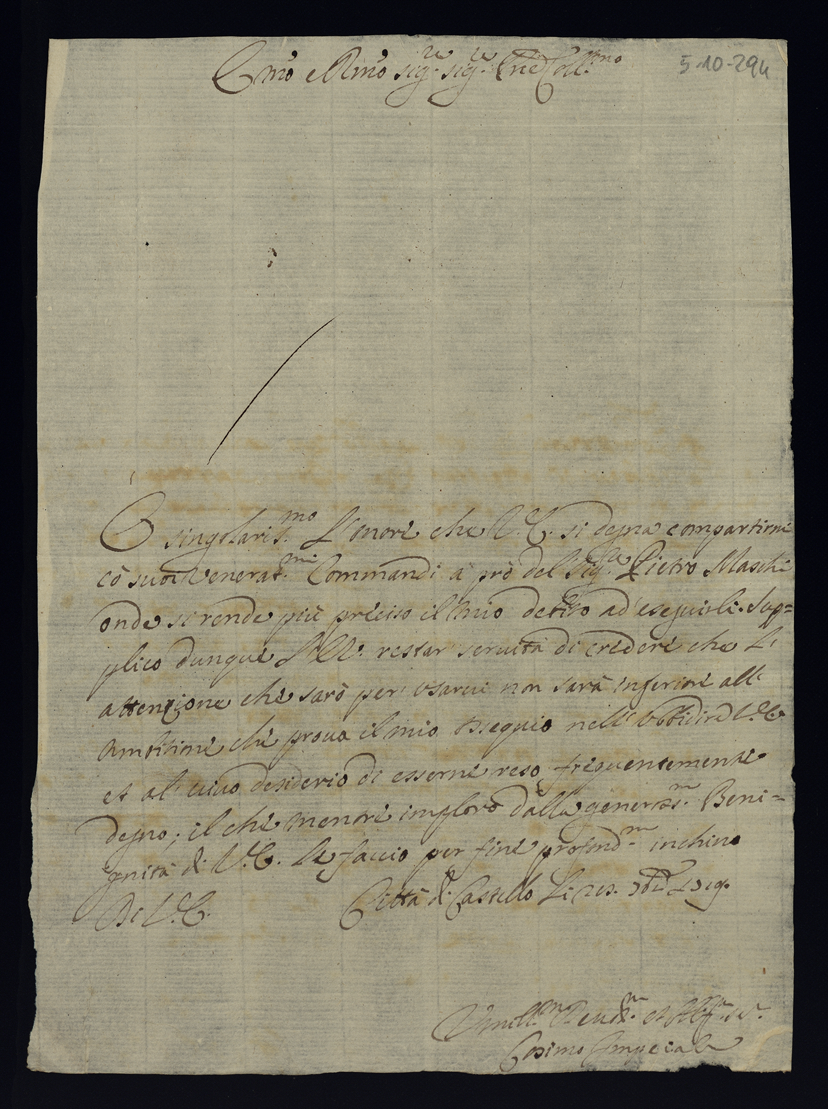 Emo e Rmo sig.re sig.re Pne Coll.mo
5-10-294
È singolaris.mo l'onore che V.E. si degna compartirmi
cō suoi Venerat.mi Commandi à prò del Sig.re Pietro Maschi
onde si rende più preciso il mio debito ad eseguirli. Sup=
plico dunque l'E.V. restar servita di credere che l'
attenzione che sarò per usarvi non sarà inferiore all'
Ambitione che prova il mio ossequio nell'obbidire V.E.
et al vivo desiderio di esserne reso frequentemente
degno; il che mentre imploro dalla generosis.ma Beni=
gnità di V.E. Le faccio per fine profond.mo inchino
Di V.E. Città di Castello Li
Umill.mo Devot.mo et Obl.mo se.re
Cosimo Imperiale